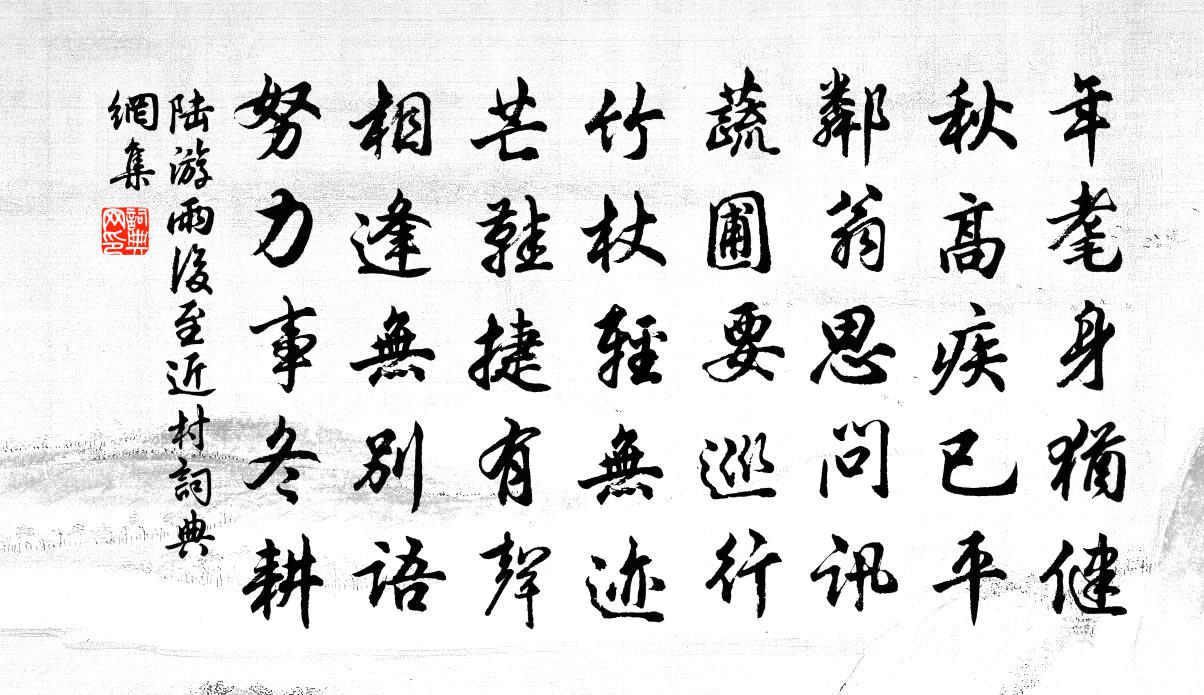 年耄身猶健
秋高疾已平
鄰翁思問訊
蔬圃要巡行
竹杖輕無迹
芒鞋捷有聲
相逢無別語
努力事冬耕
陸游雨後至近村詞典
網集
詞典
网印